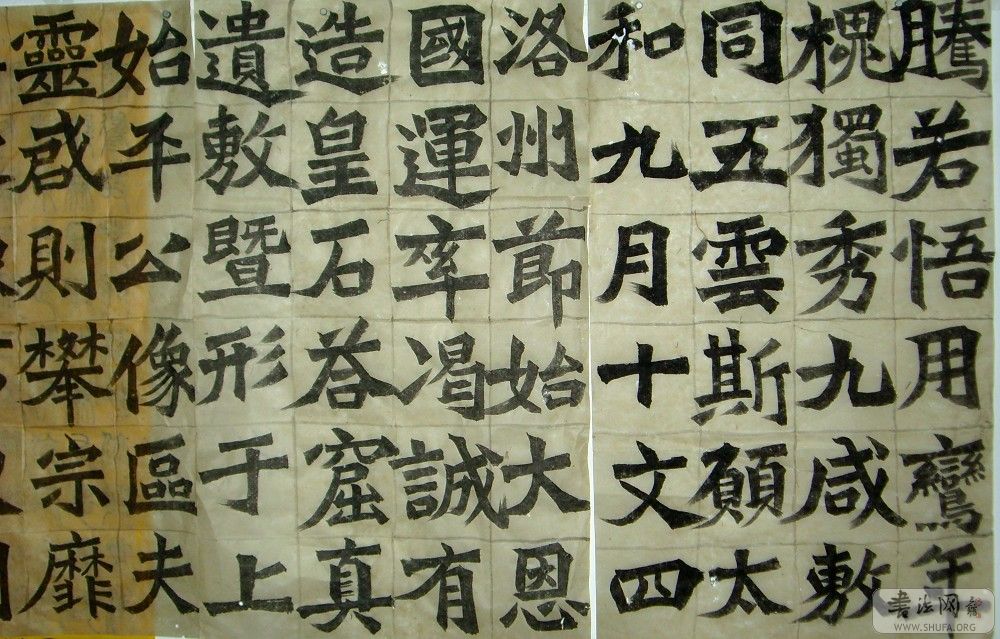 騰若悟用鸞
槐獨秀九咸敷
同五雲斯願太
和九月十文四
洛州節始大恩
國運率渴誠有
造皇石荅窟真
遺敷暨形于上
始平公像區夫
靈啟則攀宗靡
书法网
WWW.SHUFA.ORG